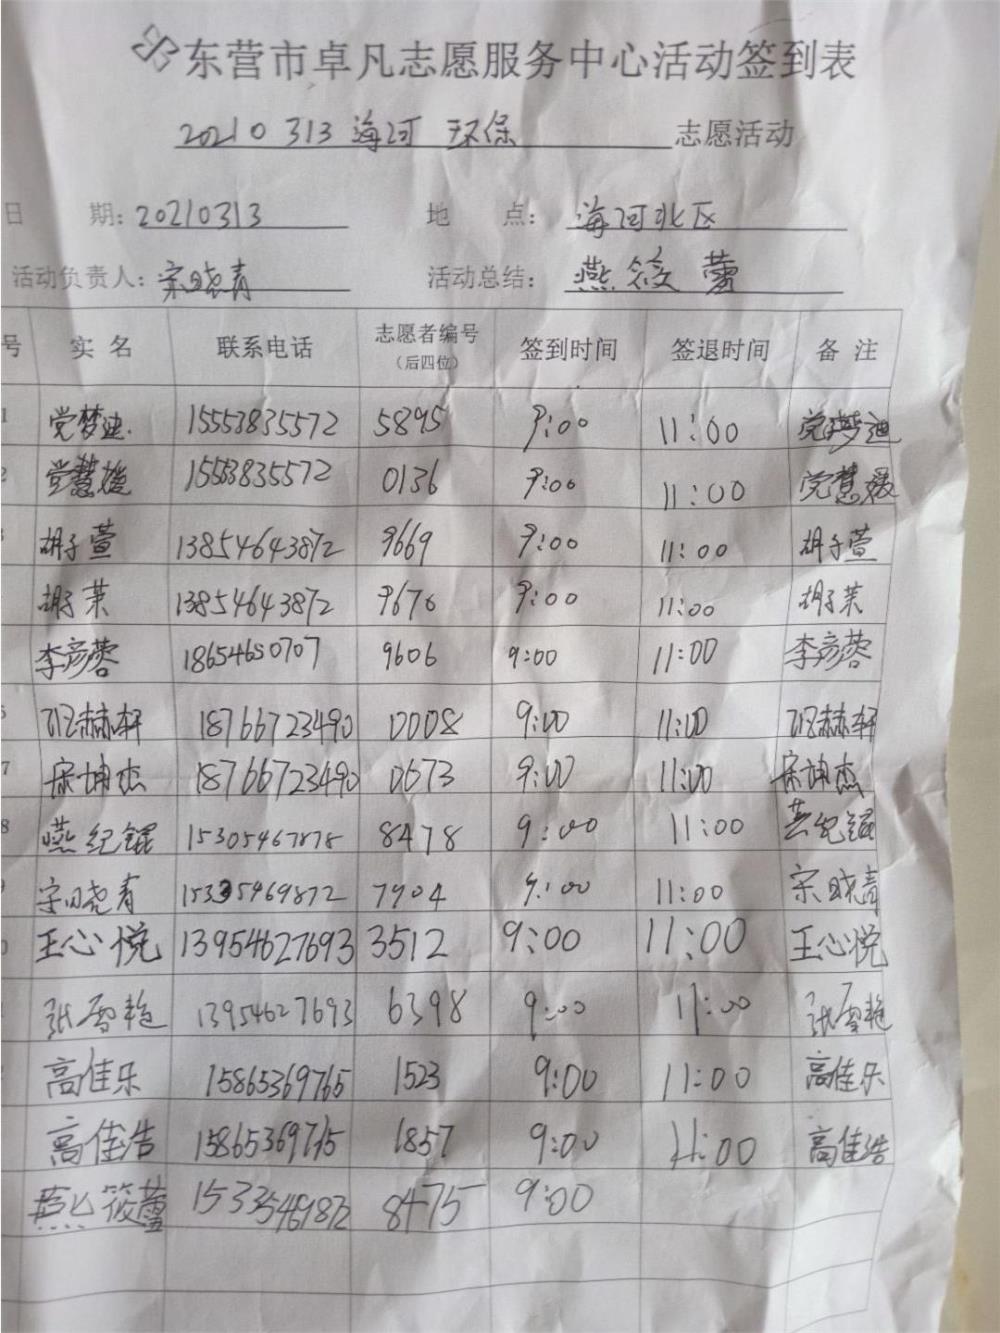 东营市卓凡志愿服务中心活动签到表
20210313 海河 环保 志愿活动
日 期: 20210313 地 点: 海河北区
活动负责人: 宋晓青 活动总结: 燕筱蕾
号 实 名 联系电话 志愿者编号 (后四位) 签到时间 签退时间 备 注
1 党梦迪 15553835572 5895 9:00 11:00 党梦迪
2 党慧媛 15553835572 0136 9:00 11:00 党慧媛
胡子萱 13854643872 9669 9:00 11:00 胡子萱
胡子茉 13854643872 9676 9:00 11:00 胡子茉
李彦蓉 18654680707 9606 9:00 11:00 李彦蓉
赫轩 18766723490 0008 9:00 11:00 赫轩
7 宋坤杰 18766723490 0673 9:00 11:00 宋坤杰
8 燕纪锟 15305467878 8478 9:00 11:00 燕纪锟
宋晓青 15335469872 7904 9:00 11:00 宋晓青
王心悦 13954627693 3512 9:00 11:00 王心悦
张雪艳 13954627693 6398 9:00 11:00 张雪艳
高佳乐 15865369765 1523 9:00 11:00 高佳乐
高佳浩 15865369765 1857 9:00 11:00 高佳浩
燕筱蕾 15335469872 8475 9:00